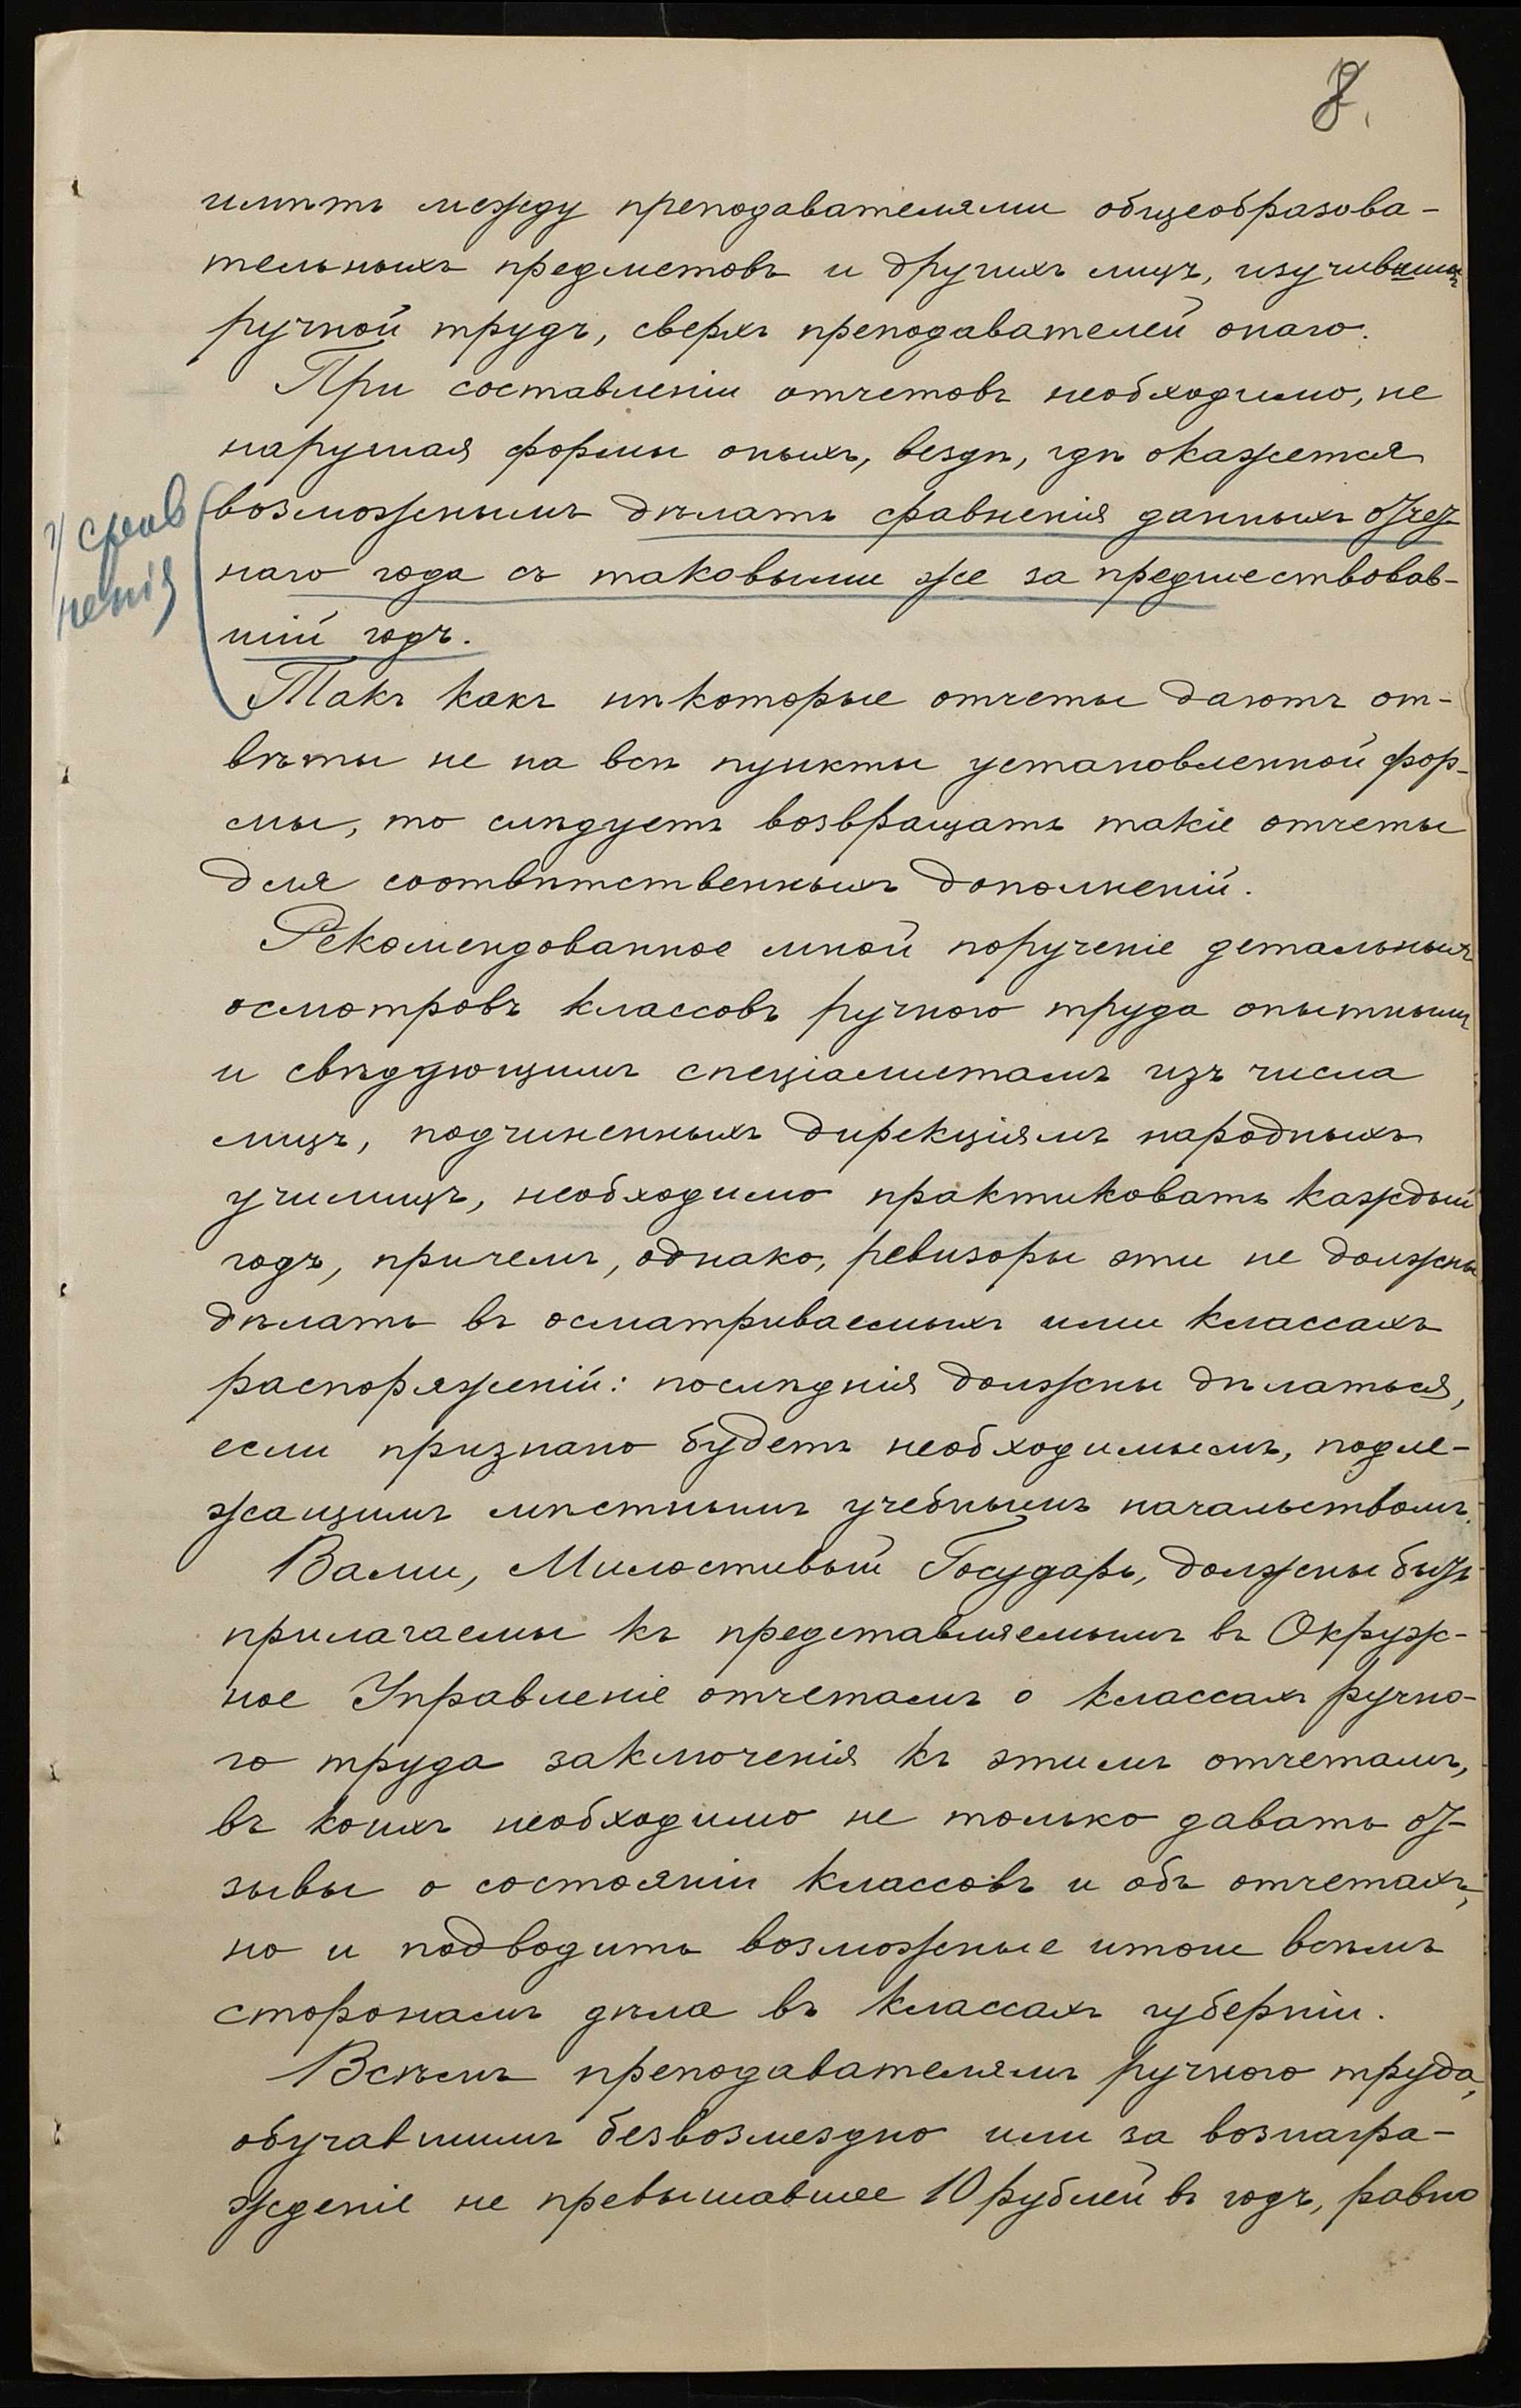 8.
имѣть между преподавателями общеобразова-
тельныхъ предметовъ и другихъ лицъ, изучивших
ручной трудъ, сверхъ преподавателей онаго.
При составленіи отчетовъ необходимо, не
нарушая формы оныхъ, вездѣ, гдѣ окажется
возможнымъ дѣлать сравненія данныхъ отчет-
наго года съ таковыми же за предшествовав-
шій годъ.
срав
ненія
Такъ какъ нѣкоторые отчеты даютъ от-
вѣты не на всѣ пункты установленной фор-
мы, то слѣдуетъ возвращать такіе отчеты
для соотвѣтственныхъ дополненій.
Рекомендованное мной порученіе детальныхъ
осмотровъ классовъ ручного труда опытнымъ
и свѣдующимъ спеціалистамъ изъ числа
лицъ, подчиненныхъ дирекціямъ народныхъ
училищъ, необходимо практиковать каждый
годъ, причемъ, однако, ревизоры эти не должны
дѣлать въ осматриваемыхъ ими классахъ
распоряженій: послѣднія должны дѣлаться,
если признано будетъ необходимымъ, подле-
жащимъ мѣстнымъ учебнымъ начальствомъ.
Вами, Милостивый Государь, должны быть
прилагаемы къ представляемымъ въ Окруж-
ное Управленіе отчетамъ о классахъ ручно-
го труда заключенія къ этимъ отчетамъ,
въ коихъ необходимо не только давать от-
зывы о состояніи классовъ и объ отчетахъ,
но и подводить возможные итоги всѣмъ
сторонамъ дѣла въ классахъ губерніи.
Всѣмъ преподавателямъ ручного труда,
обучавшимъ безвозмездно или за вознагра-
жденіе не превышавшее 10 рублей въ годъ, равно